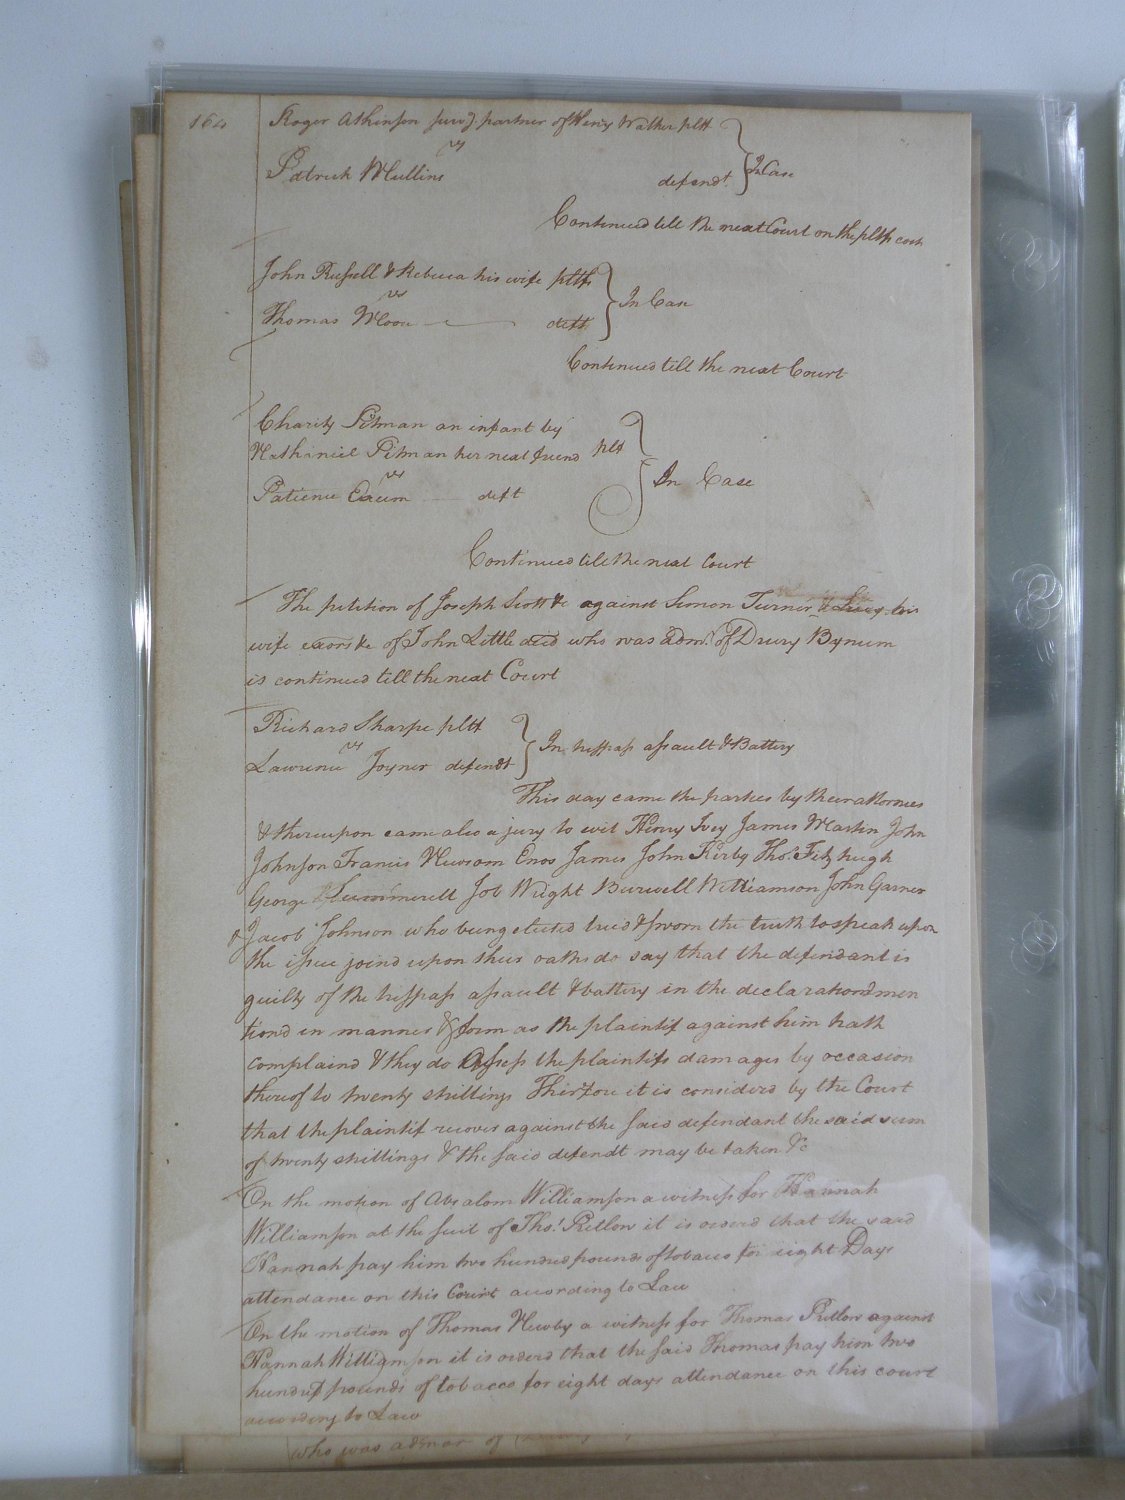 164
Roger Atkinson surv.g partner of Henry Walker pltf
vs
Patrick McCullins defendt. In Case
Continued till the next Court on the pltfs cost
John Russell & Rebecca his wife pltfs
vs In Case
Thomas Moon deft
Continued till the next Court
Charity Pitman an infant by
Nathaniel Pitman her next friend plt
vs In Case
Patience Exum deft
Continued till the next Court
The petition of Joseph Scott &c against Simon Turner & Lucy his
wife exors &c of John Little decd who was adm.r of Drury Bynum
is continued till the next Court
Richard Sharpe pltf
vs In tresspass assault & Battery
Lawrence Joyner defendt
This day came the parties by their attornies
& thereupon came also a jury to wit Henry Ivey James Martin John
Johnson Francis Newsom Enos James John Kirby Tho.s Fitzhugh
George Summerell Job Wright Burwell Williamson John Garner
& Jacob Johnson who being elected tried & sworn the truth to speak upon
the issue joind upon their oaths do say that the defendant is
guilty of the tresspass assault & battery in the declaration men
tiond in manner & form as the plaintif against him hath
complaind & they do assess the plaintifs damages by occasion
thereof to twenty shillings Therefore it is considerd by the Court
that the plaintif recover against the said defendant the said sum
of twenty shillings & the said defendt may be taken &c
On the motion of Absalom Williamson a witness for Hannah
Williamson at the suit of Tho.s Pretlow it is orderd that the said
Hannah pay him two hundred pounds of tobacco for eight Days
attendance on this Court according to Law
On the motion of Thomas Newby a witness for Thomas Pretlow against
Hannah Williamson it is orderd that the said Thomas pay him two
hundred pounds of tobacco for eight days attendance on this court
according to Law
who was admor of